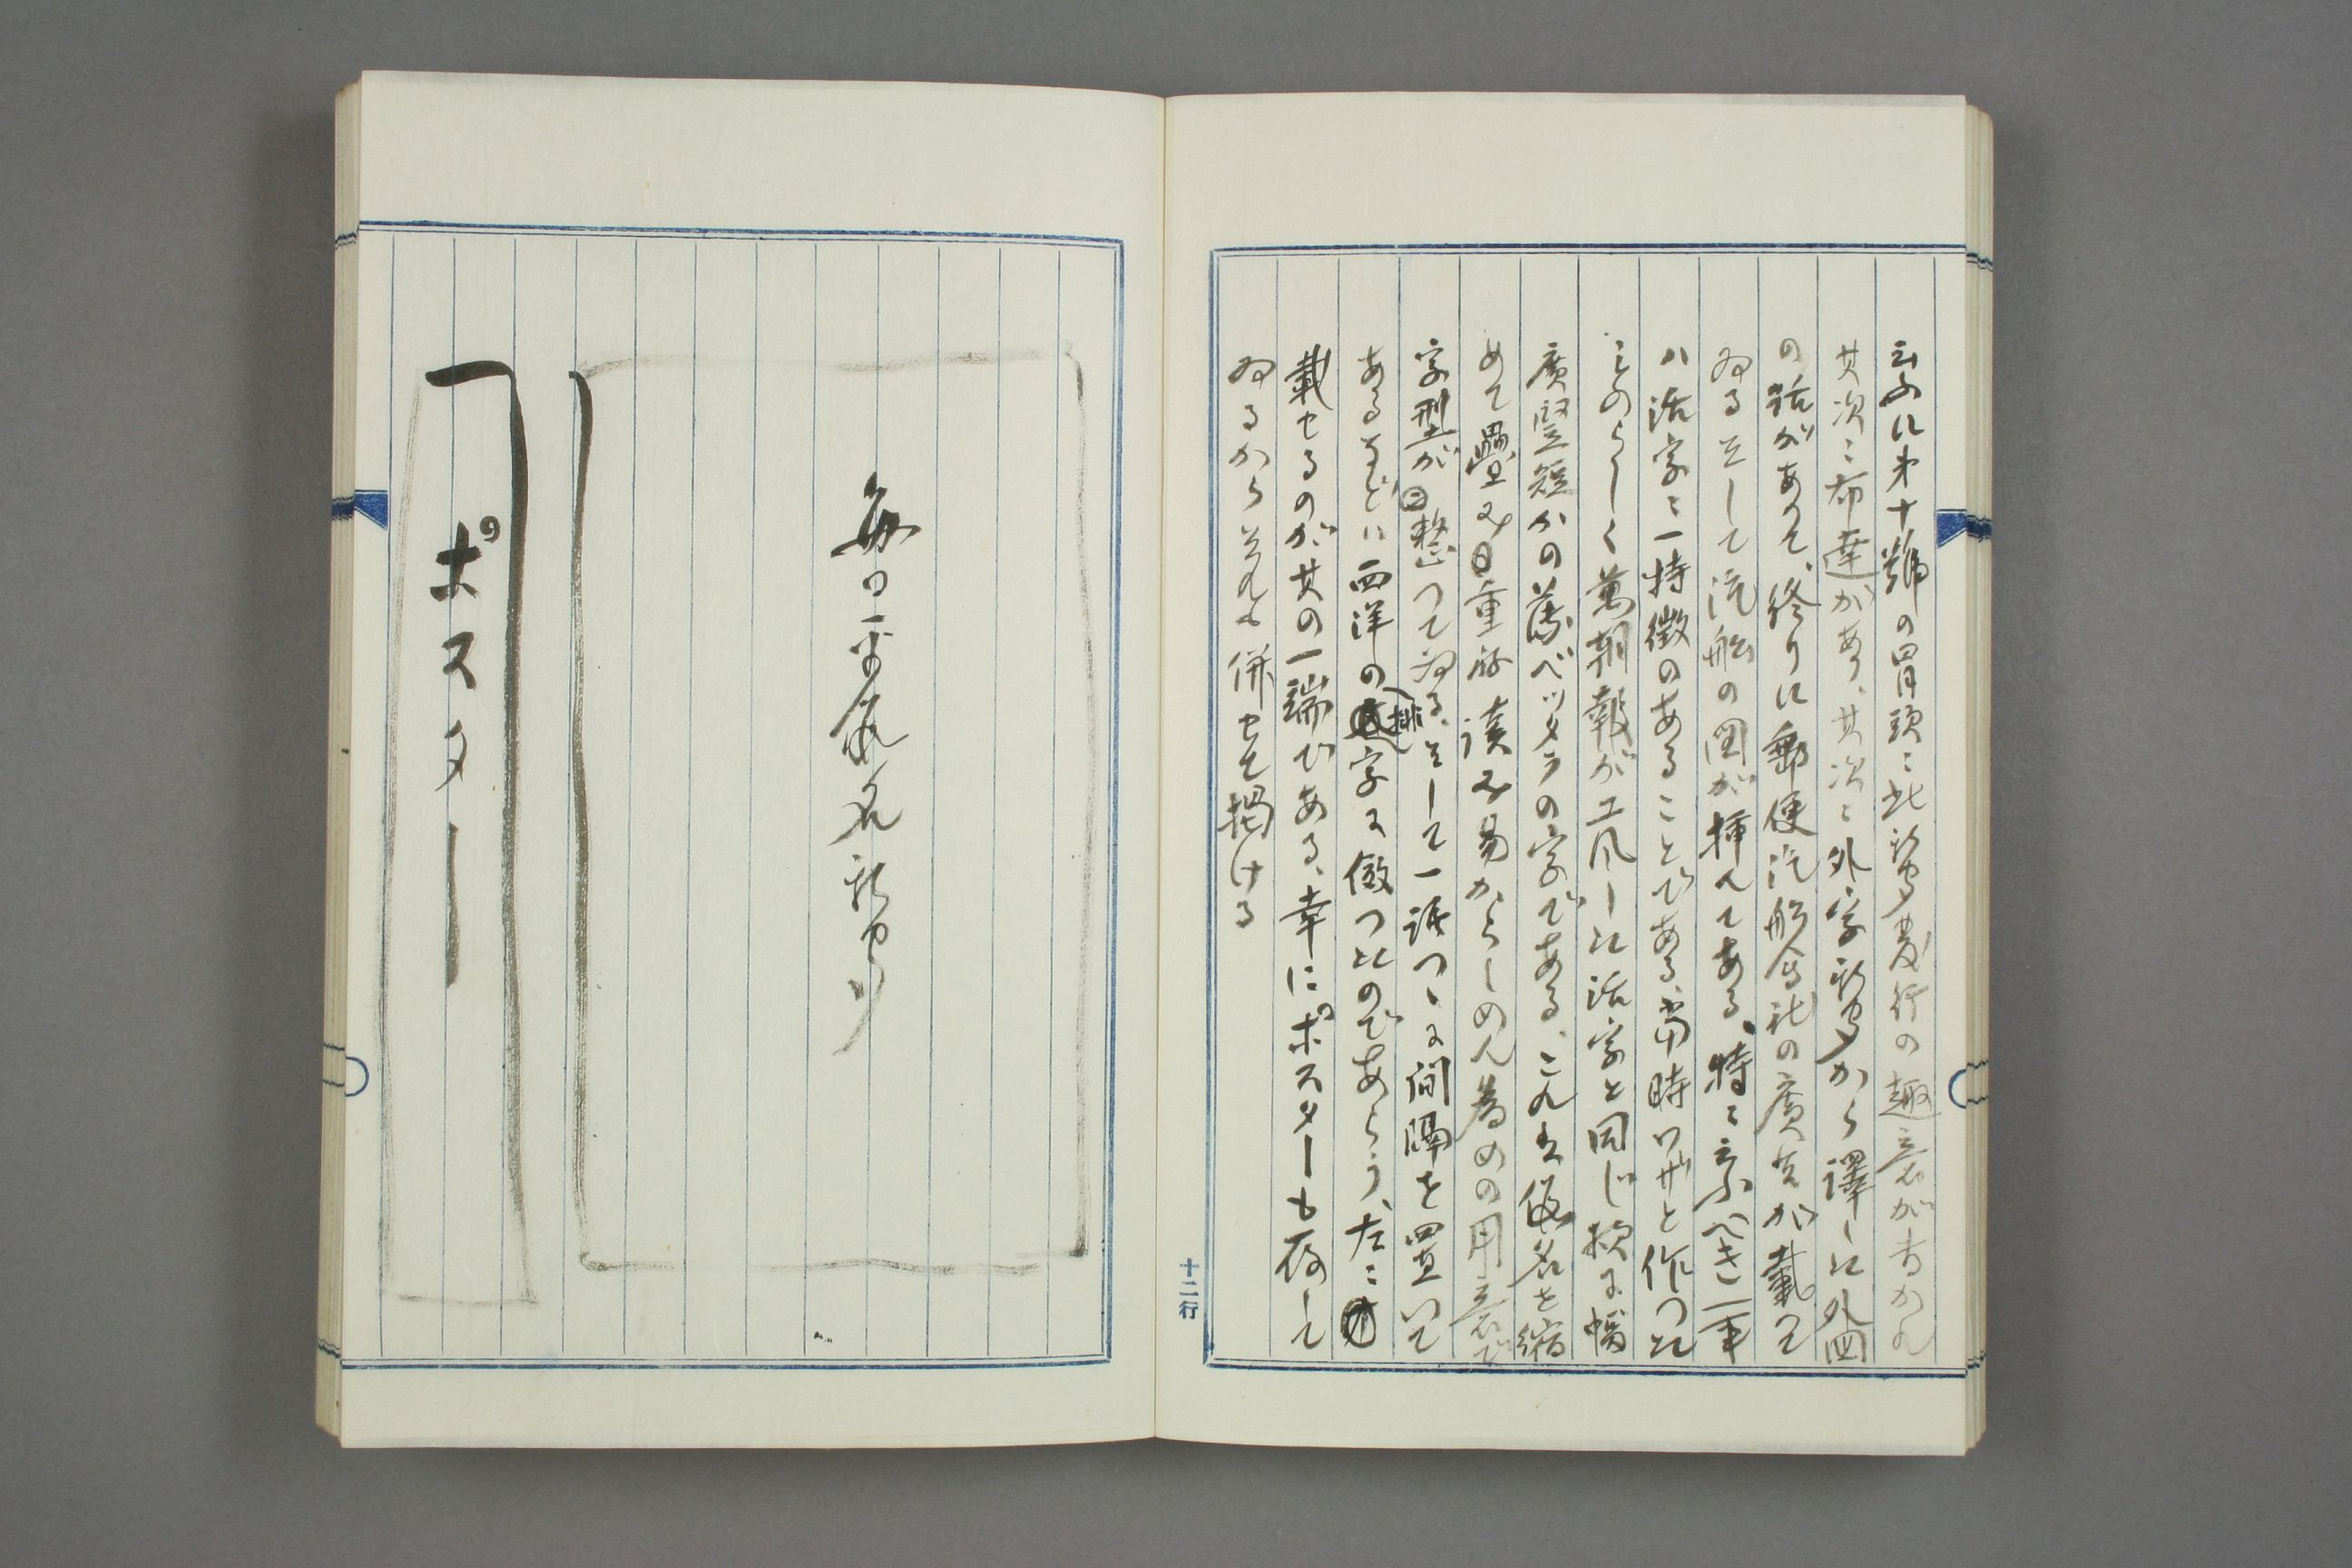 云ふに第十號の冒頭に此新聞発行の趣意がありて
其次に布達があり、其次に外字新聞から譯した外國
の話があつて、終りに郵便汽船会社の廣告が載つて
ゐるそして汽船の図が挿んである、特に云ふべき一事
ハ活字に一特徴のあることである、當時ワザと作つた
ものらしく萬朝報が工風した活字と同じ様に幅
廣竪短かの薄ベッタラの字である、これは仮名を縮
めて疊み重ね讀み易からしめん為めの用意で
字型が整つてゐる、そして一語つゝに間隔を置いて
あるなどハ西洋の排字に倣つたのであらう、左に
載せるのが其の一端である、幸にポスターも存して
ゐるから夫れも併せて掲ける
十二行
毎日平仮名新聞
ポスター